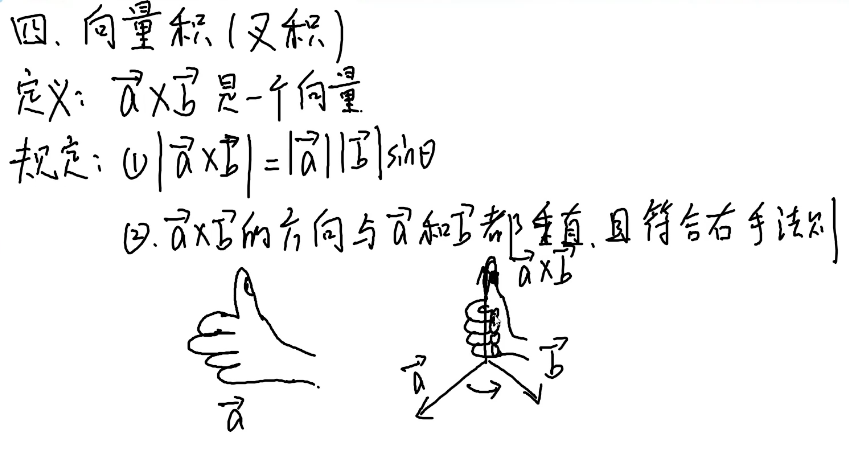 四、向量积(叉积)
定义: a⃗×b⃗是一个向量
规定: ①|a⃗×b⃗|=|a⃗||b⃗|sinθ
②. a⃗×b⃗的方向与a⃗和b⃗都垂直、且符合右手法则
a⃗×b⃗
a⃗ b⃗
a⃗